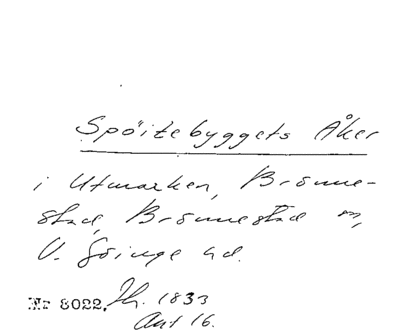 Spöitebyggets Åker
i Utmarken, Brönne-
stad, Brönnestad sn,
V. Göinge hd.
Nr 8022. Jh. 1833
Akt 16.